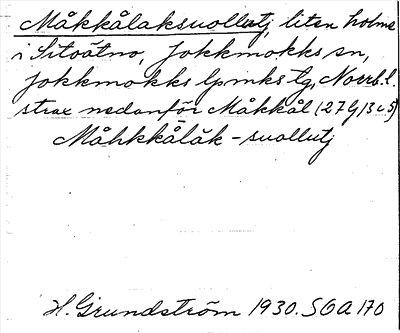 Måkkålaksuollutj, liten holme
i Sitoätno, Jokkmokks sn,
Jokkmokks lpmks tg, Norrb.l.
strax nedanför Måkkål (27G/3c5)
Måhkkålåk-suollutj
H. Grundström 1930. SOA 170